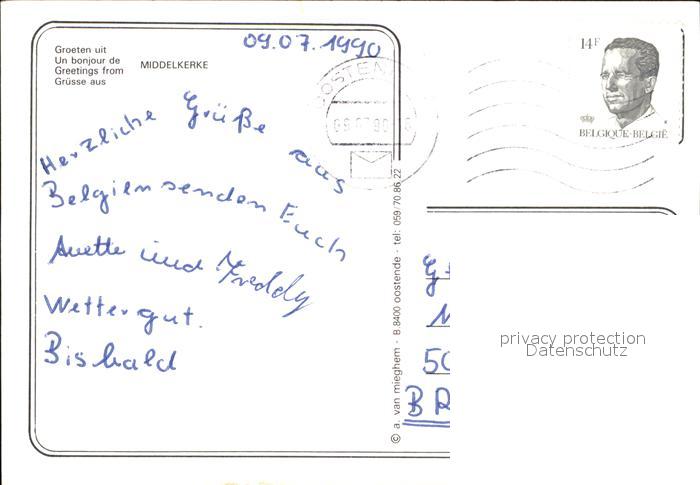 Groeten uit
Un bonjour de
Greetings from
Grüsse aus
MIDDELKERKE
09.07.1990
Herzliche Grüße aus
Belgien senden Euch
Anette und Freddy
Wetter gut.
Bis bald
OOSTEN
14F
BELGIQUE-BELGIË
© a. van mieghem - B.8400 oostende - tel: 059/70.86.22
50
BR
privacy protection
Datenschutz